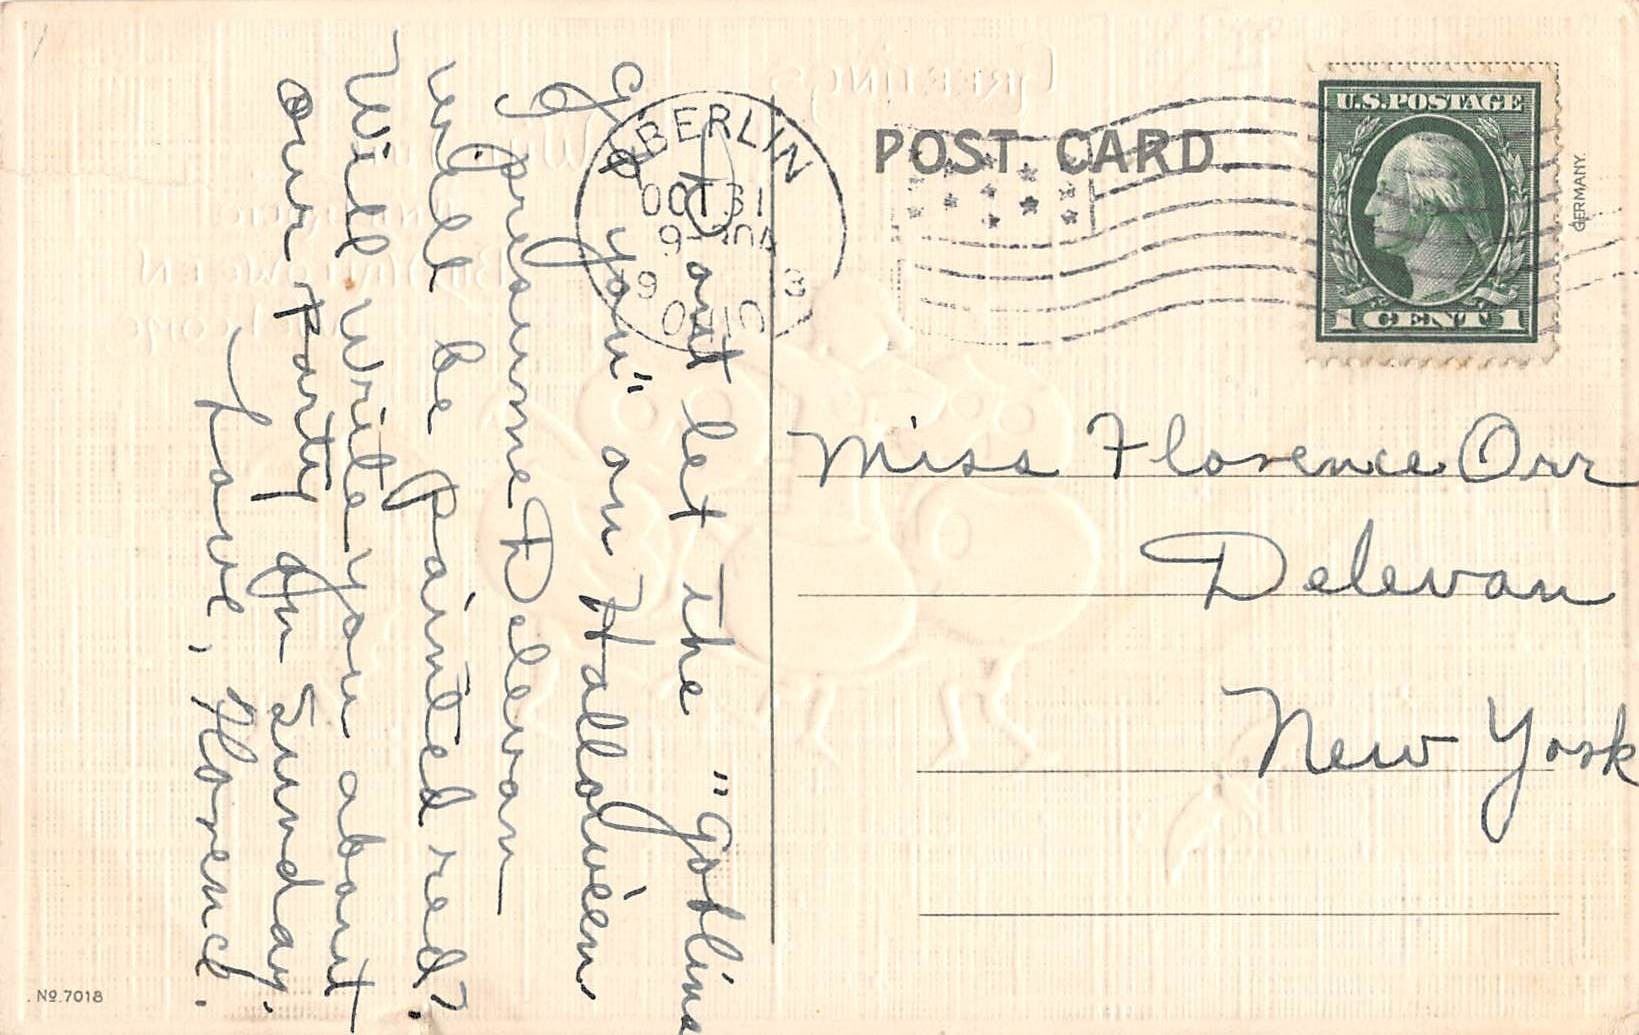 POST CARD.
U.S. POSTAGE
1 CENT 1
GERMANY.
OBERLIN
OCT 31
9-30A
9 8
O. 10
Miss Florence Orr
Delevan
New York
Don't let the "Goblins
Get you" on Hallowe'en
I presume Delevan
will be painted red?
Will write you about
our party on Sunday.
Love, Florence.
No. 7018